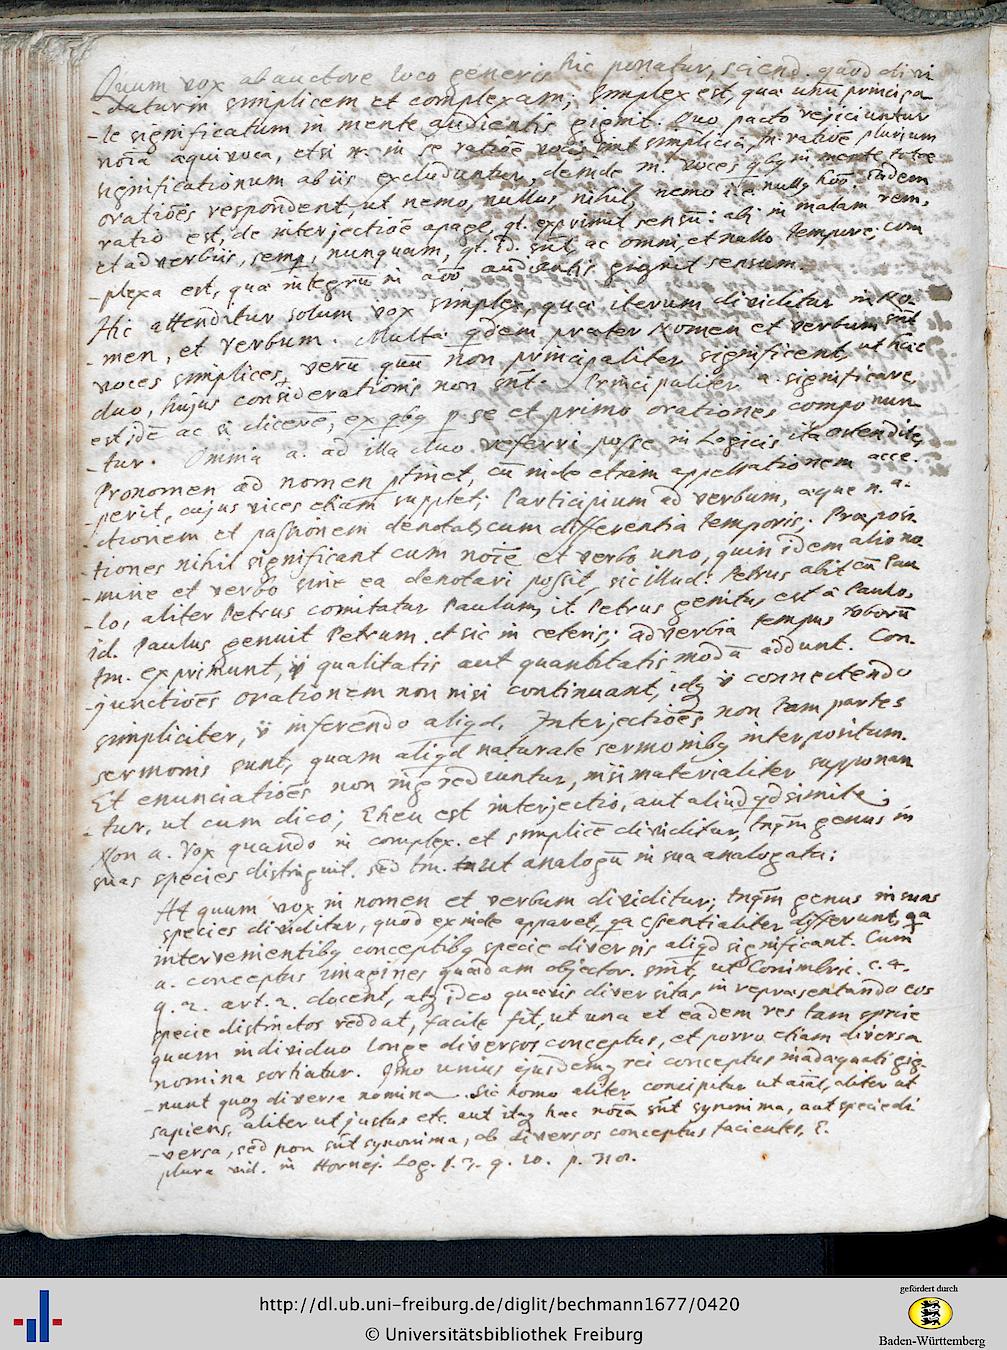 Quum vox ab auctore loco generis hic ponatur, sciend. quod divi
-datur in simplicem et complexam; simplex est, quæ unū principa
-le significatum in mente audientis gignit. Quo pacto rejiciuntur
noīa æquivoca, etsi n. in se ratiōe vocis sint simplicia, tn. ratiōe plurium
significationum ab iis excluduntur, deinde in. voces, qbg in mente totæ
oratiōes respondent, ut nemo, nullus, nihil, nemo i.e. nullg hoō. Eadem
ratio est, de interjectiōe apage, qt. exprimit sensū: abi in malam rem,
et adverbiis, semp, nunquam, qt. id. sūt, ac omni, et nullo tempore; com
-plexa est, quæ integrū in aīo audientis gignit sensum.
Hic attenditur solum vox simplex, quæ iterum dividitur in No-
-men, et Verbum. Multæ qdem præter Nomen et verbum sūt
voces simplices, verū quū non principaliter significent, ut hæc
duo, hujus considerationis non sūt. Principaliter a. significare,
est idē ac si dicerē, ex qbg p se et primo orationes componun-
-tur. Omnia a. ad illa duo referri posse in Logicis ita ostenditr,
Pronomen ad nomen ptinet, cū inde etiam appellationem acce-
-perit, cujus vices etiam supplet; Participium ad verbum, æque n. a-
-ctionem et passionem denotat, cum differentia temporis; Præposi-
-tiones nihil significant cum noīe et verbo uno, quin idem alio no-
-mine et verbo sine ea denotari possit, sic illud: Petrus abit cū Pau
-lo, aliter Petrus comitatur Paulum, it. Petrus genitus est à Paulo,
id. Paulus genuit Petrum et sic in ceteris; adverbia tempus roborū
tm. exprimunt, ṽ qualitatis aut quantitatis modū addunt. Con-
-junctiōes orationem non nisi continuant, idg ṽ connectendo
simpliciter, ṽ inferendo aliqd. Interjectiōes non tam partes
sermonis sunt, quam aliqd naturale sermonibg interpositum.
Et enunciatiōes non ingrediuntur, nisi materialiter supponan
-tur, ut cum dico; Eheu est interjectio, aut aliud qd simile.
Non a. vox quando in complex. et simplicē dividitur, tnqm genus in
suas species distinguit. sed tm. ut analogū in sua analogata;
At quum vox in nomen et verbum dividitur; tnqm genus in suas
species dividitur, quod ex inde apparet, qa essentialiter differunt, qa
intervenientibg conceptibg specie diversis aliqd significant. Cum
a. conceptus imagines quædam objector. sint, ut Conimbric. c. 4.
q. 2. art. 2. docent, atg ideo quævis diversitas in repræsentando eos
specie distinctos reddat, facile fit, ut una et eadem res tam specie
quam individuo longe diversos conceptus, et porro etiam diversa
nomina sortiatur. Imo unius ejusdemg rei conceptus inadæquati gig-
-nunt quog diversa nomina. Sic homo aliter concipitur ut aīal, aliter ut
sapiens, aliter ut justus etc. aut itag hæc noīa sūt synonima, aut specie di
-versa, sed non sūt synonima, ob diversos conceptus facientes, E.
plura vid. in Hornej. Log. l. 3. q. 20. p. 310.
http://dl.ub.uni-freiburg.de/diglit/bechmann1677/0420
© Universitätsbibliothek Freiburg
gefördert durch
Baden-Württemberg